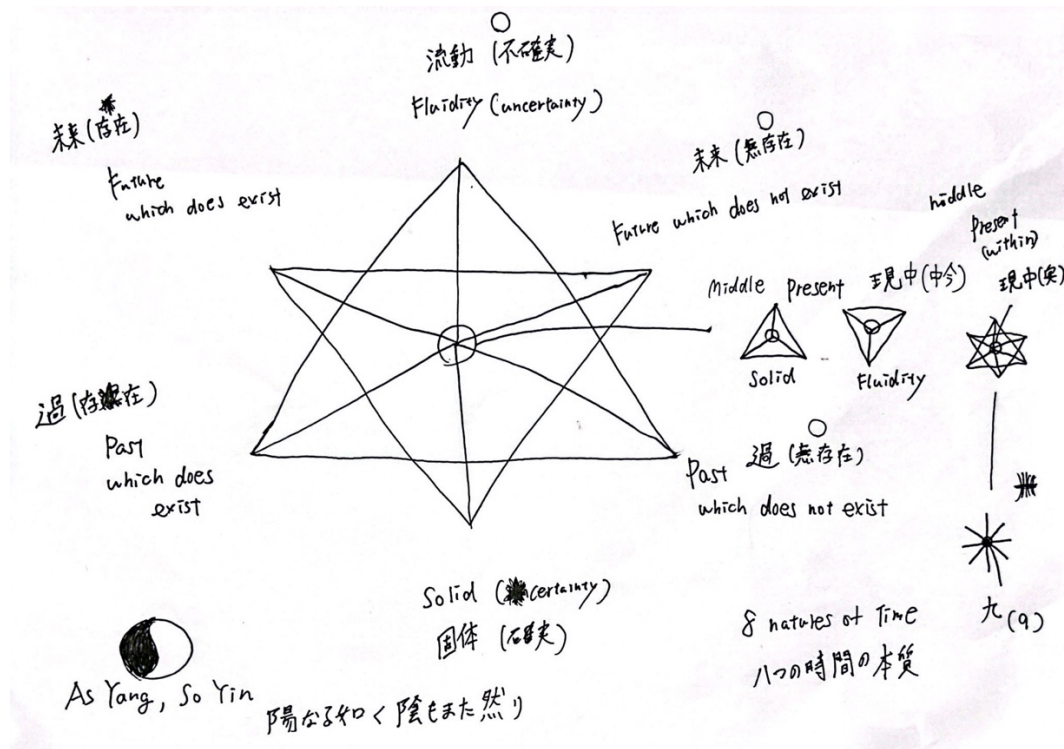 流動 (不確実)
Fluidity (uncertainty)
未来 (存在)
Future
which does exist
未来 (無存在)
Future which does not exist
middle
Present
(within)
現中(実)
Middle Present 現中(中今)
Solid
Fluidity
過 (存在)
Past
which does
exist
Past 過 (無存在)
which does not exist
Solid (certainty)
固体 (確実)
8 natures of Time
八つの時間の本質
九 (9)
As Yang, So Yin
陽なる如く陰もまた然り